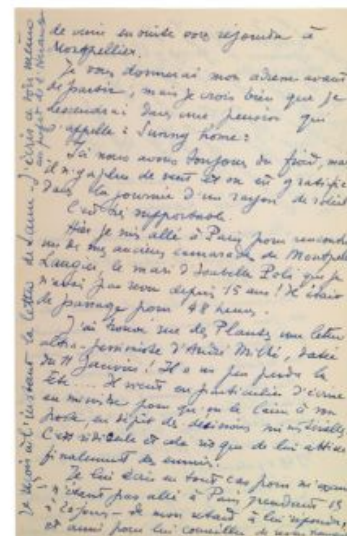 de venir ensuite vous rejoindre à
Montpellier.
Je vous donnerai mon adresse avant
de partir, mais je crois bien que je
descendrai dans une pension qui
s'appelle : Swing home :
Ici nous avons toujours du froid, mais
il n'y a plus de vent et on est gratifié
dans la journée d'un rayon de soleil
C'est très supportable.
Hier je suis allé à Paris pour rencontrer
un de mes anciens camarades de Montpellier
Laugier, le mari d'Isabelle que je
n'avais pas revu depuis 15 ans ! Il était
de passage pour 48 heures.
J'ai trouvé rue des Plantes une lettre
ultra-pessimiste d'André, datée
du 11 Janvier ! Il a un peu perdu la
tête .... Il vient en particulier d'écrire
au ministre pour qu'on le à son
poste, en dépit de décisions ministérielles
C'est ridicule et cela risque de lui attirer
finalement des ennuis.
Je lui écris en tout cas pour m'excuser
- n'étant pas allé à Paris pendant 15
à jours - de mon retard à lui répondre,
et aussi pour lui conseiller de
Je reçois à l'instant la lettre de J'écris à